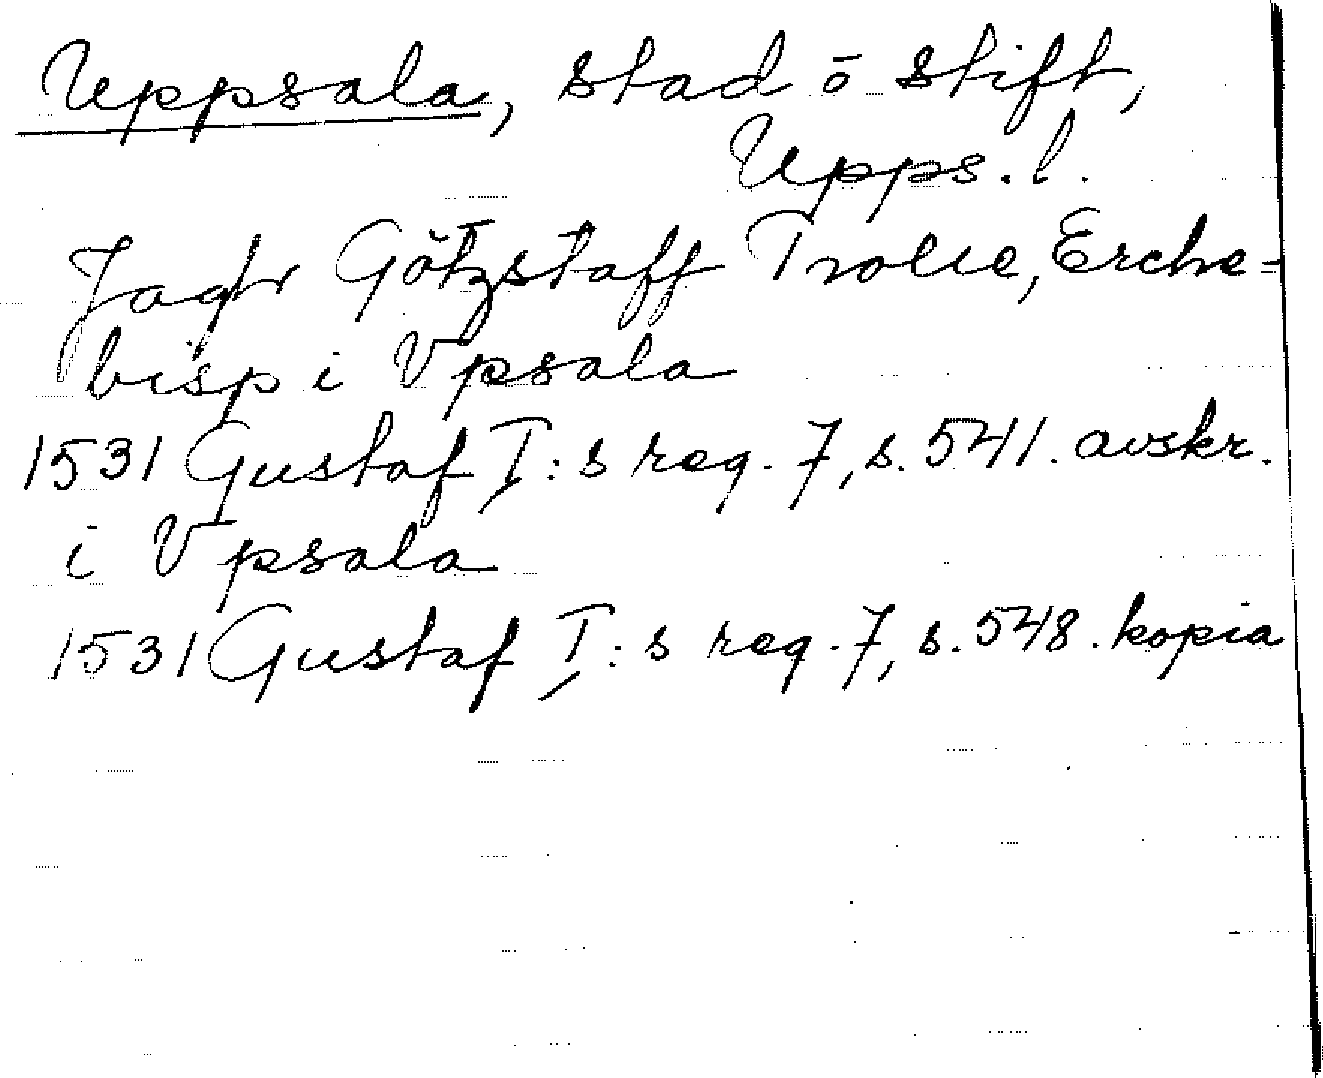 Uppsala, stad o stift,
Upps. l.
Jagh Götzstaff Trolle, Erche-
bisp i Vpsala
1531 Gustaf I:s reg. 7, s. 541. avskr.
i Vpsala
1531 Gustaf I:s reg. 7, s. 548. kopia